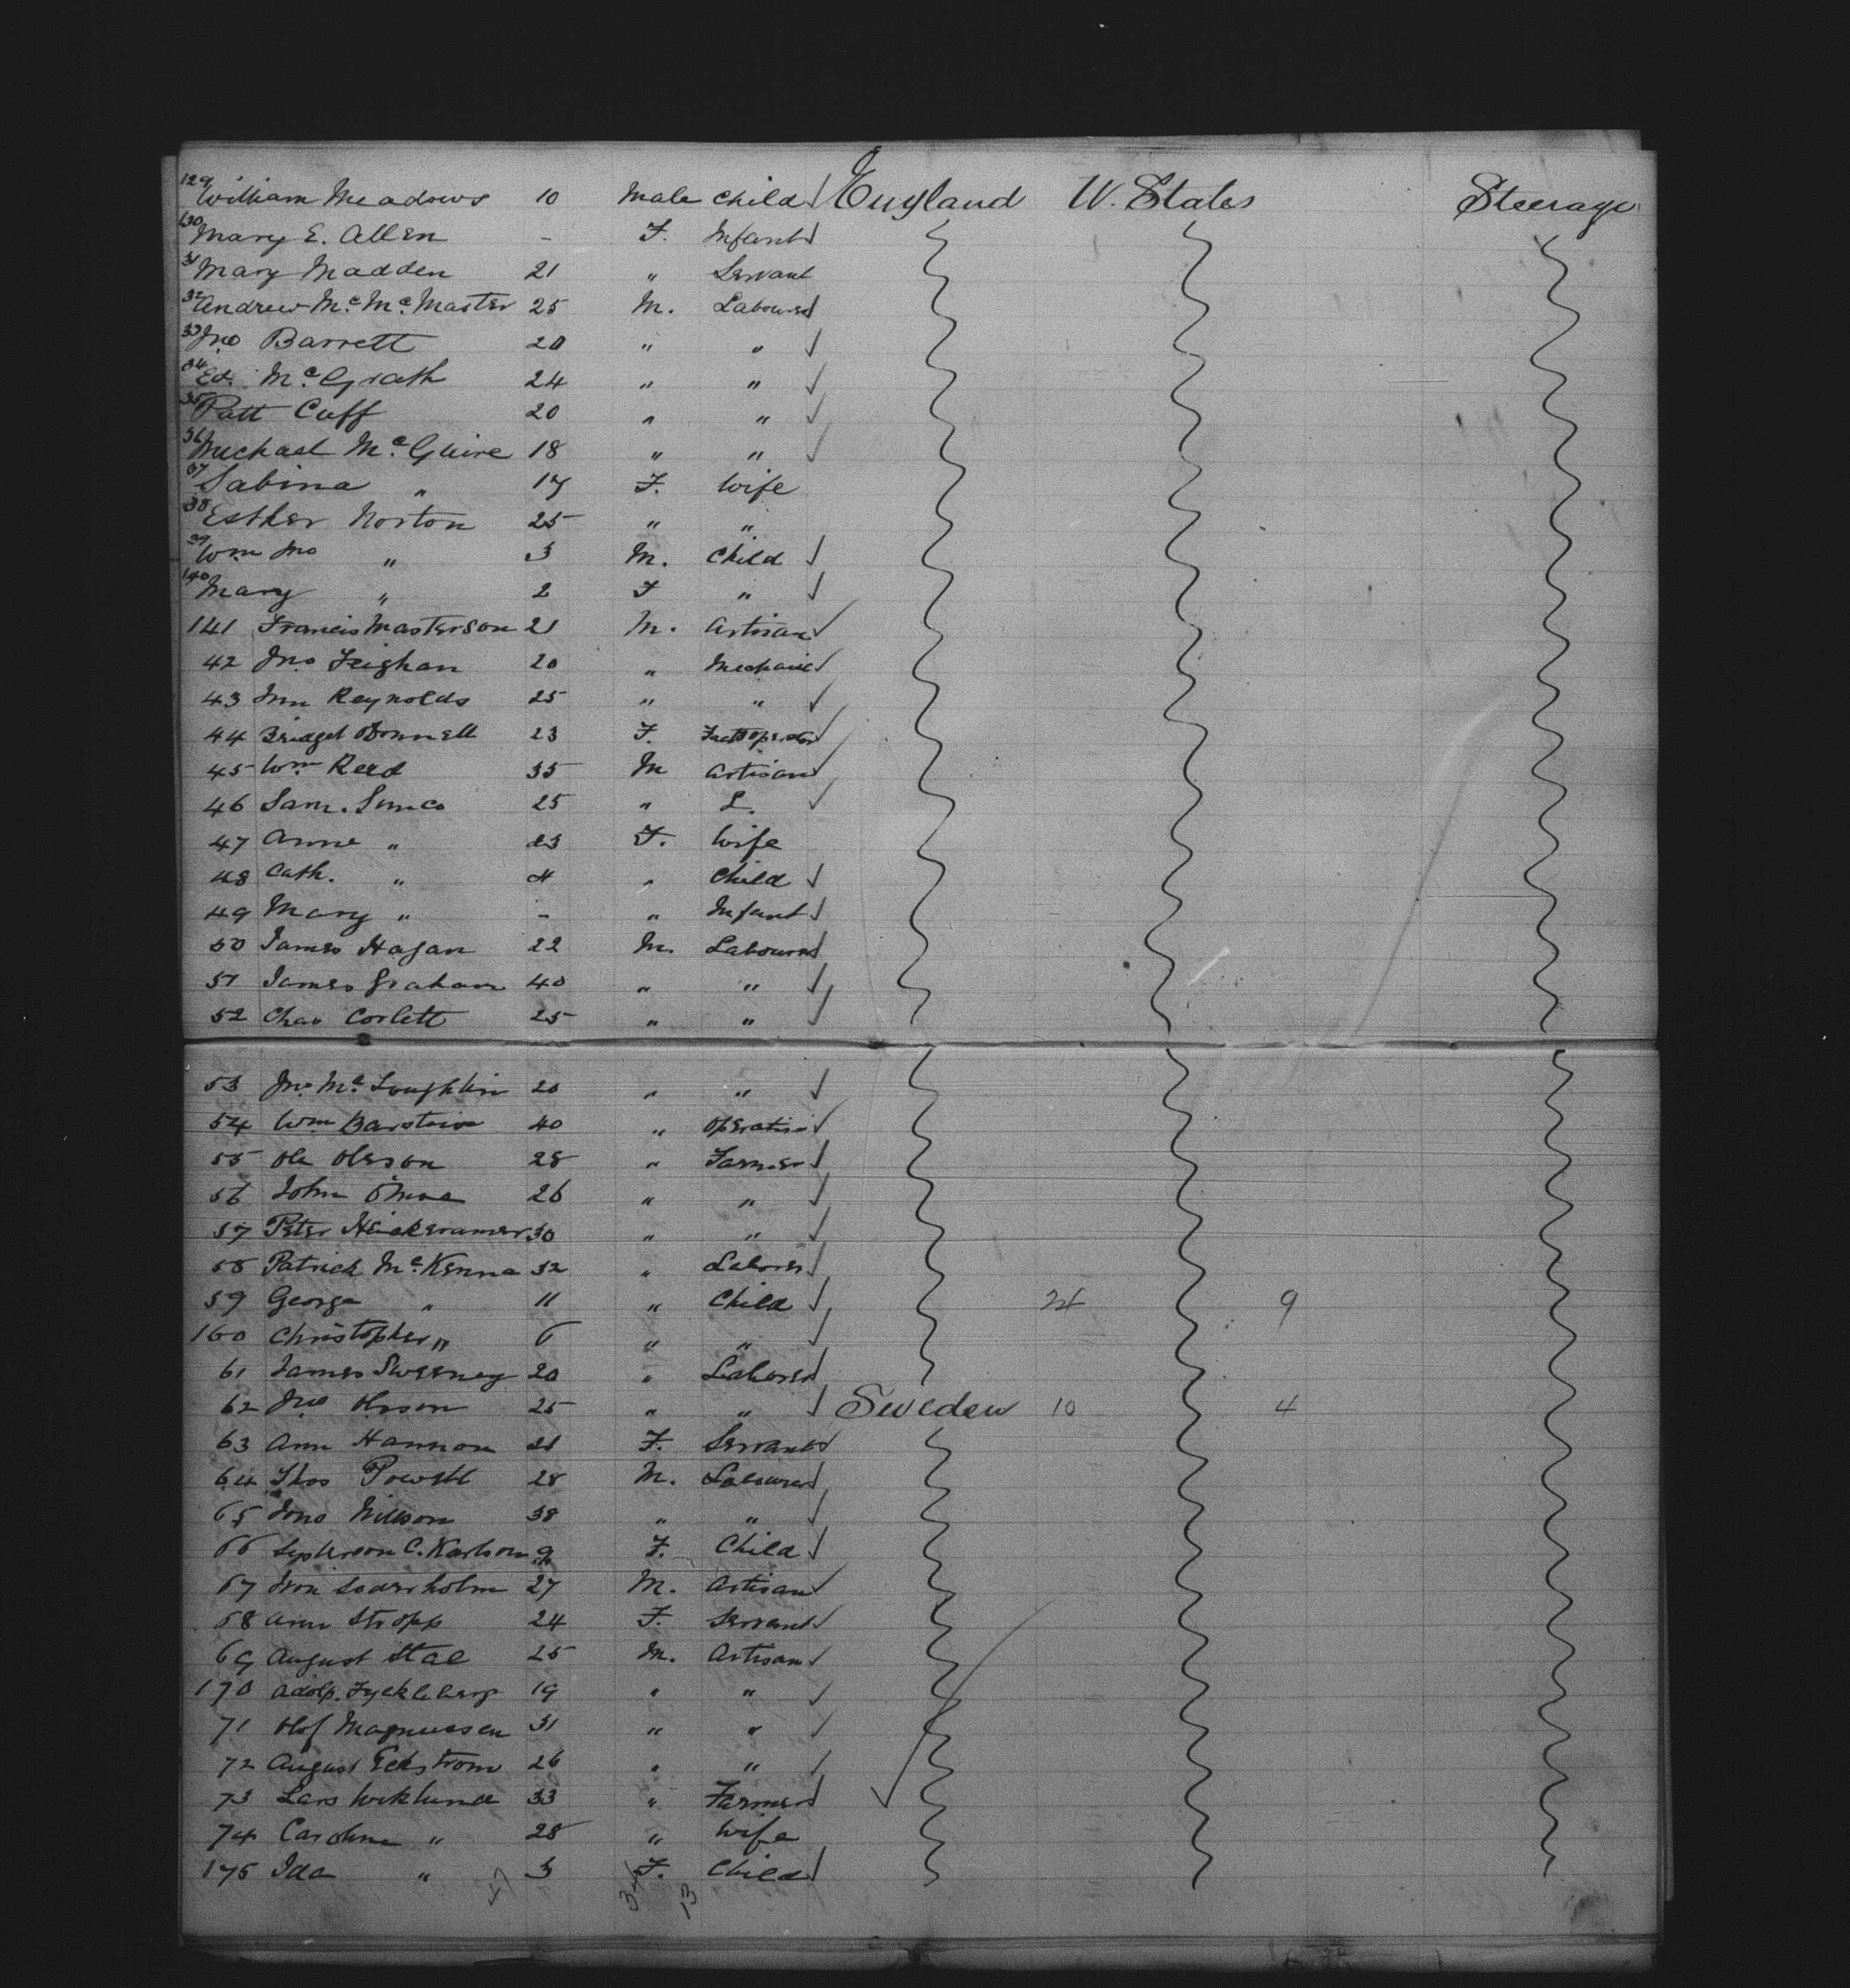 129 William Meadows 10 Male Child England U. States Steerage
130 Mary E. Allen - F. Infant
31 Mary Madden 21 " Servant
32 Andrew Mc. Mc. Master 25 M. Labourer
33 Jno Barrett 20 " "
34 Ed. Mc. Grath 24 " "
35 Patt Cuff 20 " "
36 Michael Mc. Guire 18 " "
37 Sabina " 17 F. Wife
38 Esther Norton 25 " "
39 Wm Jno " 3 M. Child
140 Mary " 2 F "
141 Francis Masterson 21 M. Artisan
42 Jno Feighan 20 " Mechanic
43 Reynolds 25 " "
44 Bridget ODonnell 23 F.
45 Wm Reed 35 M Artisan
46 Sam. 25 " L.
47 Anne " 23 F. Wife
48 Cath. " 4 " Child
49 Mary " - " Infant
50 James Hagan 22 M. Labourer
51 James Graham 40 " "
52 Chas Corlett 25 " "
53 Jno Mc. Loughlin 20 " "
54 Wm 40 " Operative
55 Ole Olsson 28 " Farmer
56 John 26 " "
57 Peter 30 " "
58 Patrick Mc. Kenna 32 " Laborer
59 George " 11 " Child 24 9
160 Christopher " 6 " "
61 James Sweeney 20 " Laborer
62 Jno Olsson 25 " " Sweden 10 4
63 Ann Hannon 21 F. Servant
64 Thos Powell 28 M. Labourer
65 38 " "
66 C. Karlson 9 F. Child
67 Soderholm 27 M. Artisan
68 Ann Stropp 24 F. Servant
69 August Stal 25 M. Artisan
170 Adolp. 19 " "
71 Olof Magnussen 31 " "
72 August Eckstrom 26 " "
73 Lars Wiklund 33 " Farmer
74 Caroline " 28 " Wife
175 Ida " 3 F. Child
47 34 13